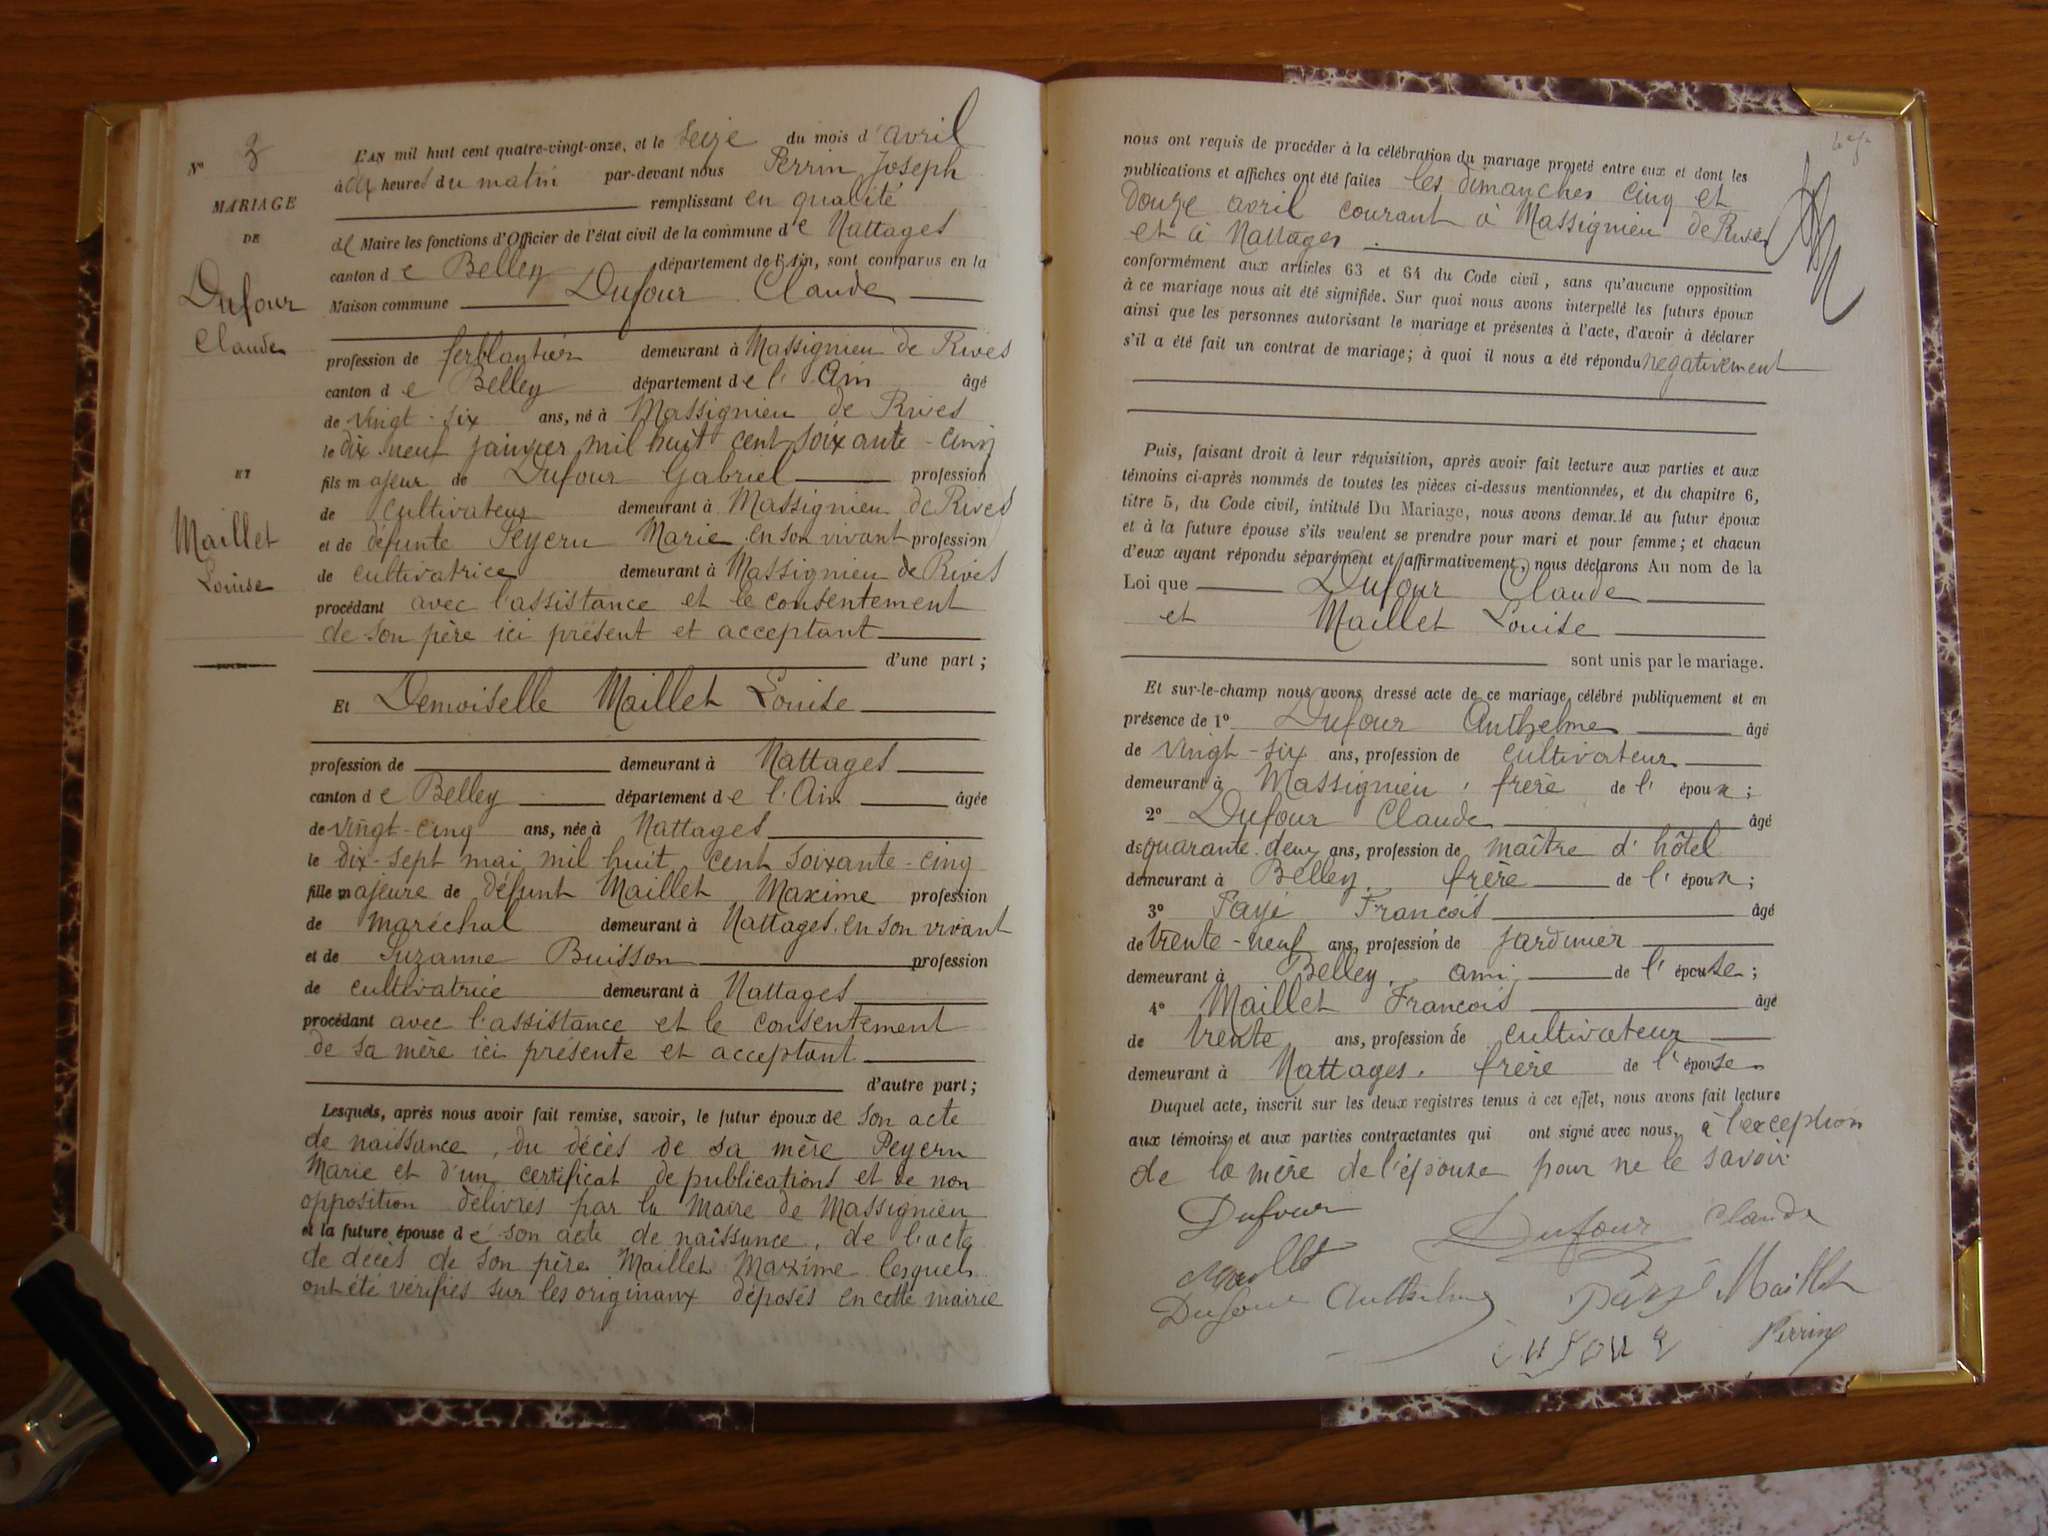 N° 3
MARIAGE
DE
Dufour
Claude
ET
Maillet
Louise
L'AN mil huit cent quatre-vingt-onze, et le seize du mois d'avril
à dix heures du matin par-devant nous Perrin Joseph
remplissant en qualité
de Maire les fonctions d'Officier de l'état civil de la commune de Nattages
canton de Belley département de l'Ain, sont comparus en la
Maison commune Dufour Claude
profession de ferblantier demeurant à Massignieu de Rives
canton de Belley département de l'Ain âgé
de vingt-six ans, né à Massignieu de Rives
le dix neuf janvier mil huit cent soixante-cinq
fils majeur de Dufour Gabriel profession
de cultivateur demeurant à Massignieu de Rives
et de défunte Peyeru Marie en son vivant profession
de cultivatrice demeurant à Massignieu de Rives
procédant avec l'assistance et le consentement
de son père ici présent et acceptant
d'une part;
Et Demoiselle Maillet Louise
profession de demeurant à Nattages
canton de Belley département de l'Ain âgée
de vingt-cinq ans, née à Nattages
le dix-sept mai mil huit cent soixante-cinq
fille majeure de défunt Maillet Maxime profession
de maréchal demeurant à Nattages en son vivant
et de Suzanne Buisson profession
de cultivatrice demeurant à Nattages
procédant avec l'assistance et le consentement
de sa mère ici présente et acceptant
d'autre part;
Lesquels, après nous avoir fait remise, savoir, le futur époux de son acte
de naissance, du décès de sa mère Peyeru
Marie et d'un certificat de publications et de non
opposition délivrés par le Maire de Massignieu
et la future épouse de son acte de naissance, de l'acte
de décès de son père Maillet Maxime lesquels
ont été vérifiés sur les originaux déposés en cette mairie
nous ont requis de procéder à la célébration du mariage projeté entre eux et dont les
publications et affiches ont été faites les dimanches cinq et
douze avril courant à Massignieu de Rives
et à Nattages
conformément aux articles 63 et 64 du Code civil, sans qu'aucune opposition
à ce mariage nous ait été signifiée. Sur quoi nous avons interpellé les futurs époux
ainsi que les personnes autorisant le mariage et présentes à l'acte, d'avoir à déclarer
s'il a été fait un contrat de mariage; à quoi il nous a été répondu négativement
Puis, faisant droit à leur réquisition, après avoir fait lecture aux parties et aux
témoins ci-après nommés de toutes les pièces ci-dessus mentionnées, et du chapitre 6,
titre 5, du Code civil, intitulé Du Mariage, nous avons demandé au futur époux
et à la future épouse s'ils veulent se prendre pour mari et pour femme; et chacun
d'eux ayant répondu séparément et affirmativement, nous déclarons Au nom de la
Loi que Dufour Claude
et Maillet Louise
sont unis par le mariage.
Et sur-le-champ nous avons dressé acte de ce mariage célébré publiquement et en
présence de 1° Dufour Anthelme âgé
de vingt-six ans, profession de cultivateur
demeurant à Massignieu, frère de l'époux;
2° Dufour Claude âgé
de quarante-deux ans, profession de maître d'hôtel
demeurant à Belley, frère de l'époux;
3° Payé Francois âgé
de trente-neuf ans, profession de jardinier
demeurant à Belley, ami de l'épouse;
4° Maillet Francois âgé
de trente ans, profession de cultivateur
demeurant à Nattages, frère de l'épouse
Duquel acte, inscrit sur les deux registres tenus à cet effet, nous avons fait lecture
aux témoins et aux parties contractantes qui ont signé avec nous, à l'exception
de la mère de l'épouse pour ne le savoir
Dufour
Dufour Claude
Maillet
Dufour Anthelme Payé Maillet
Dufour Perrin